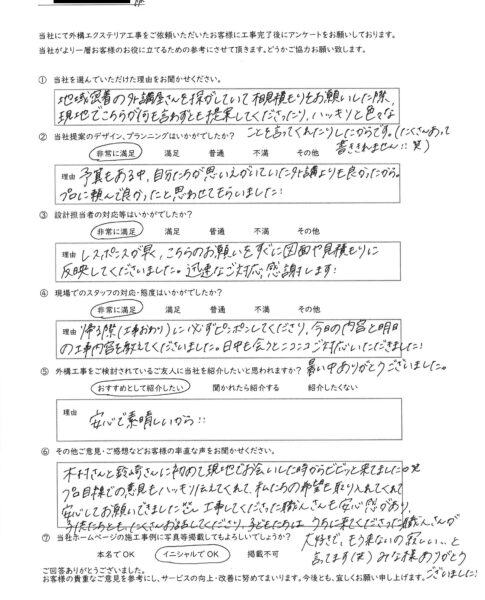 当社にて外構エクステリア工事をご依頼いただいたお客様に工事完了後にアンケートをお願いしております。
当社がより一層お客様のお役に立てるための参考にさせて頂きます。どうかご協力お願い致します。
① 当社を選んでいただけた理由をお聞かせください。
地域密着の外講屋さんを探がしていて相見積もりをお願いした際、
現地でこちらが何も言わずとも提案してくださったり、ハッキリと色々な
ことを言ってくれたりしたからです。(たくさんあって
書ききれません!! 笑)
② 当社提案のデザイン、プランニングはいかがでしたか?
非常に満足 満足 普通 不満 その他
理由 予算もある中、自分たちが思いえがいていた外講よりも良かったから。
プロに頼んで良かったと思わせてもらいました!
③ 設計担当者の対応等はいかがでしたか?
非常に満足 満足 普通 不満 その他
理由 レスポンスが早く、こちらのお願いをすぐに図面や見積もりに
反映してくださいました。迅速なご対応、感謝します!
④ 現場でのスタッフの対応・態度はいかがでしたか?
非常に満足 満足 普通 不満 その他
理由 帰る際(工事おわり)に必ずピンポンしてくださり、今日の内容と明日
の工事内容を教えてくださいました。日中も会うとニコニコご対応いただきました!
暑い中ありがとうございました。
⑤ 外構工事をご検討されているご友人に当社を紹介したいと思われますか?
おすすめとして紹介したい 聞かれたら紹介する 紹介したくない
理由 安心で素晴しいから!!
⑥ その他ご意見・ご感想などお客様の率直な声をお聞かせください。
木村さんと 崎さんに初めて現地でお会いした時からビビッと来てました 笑
プロ目線での意見もハッキリ伝えてくれて、私たちの希望も取り入れてくれて
安心してお願いできました。工事してくださった職人さんも安心感があり、
子供たちともたくさんお話してくださり、子どもたちは うちに来てくださった職人さんが
大好きで、もう来ないの寂しい、、と
言ってます(笑) みな様ありがとう
ございました!
⑦ 当社ホームページの施工事例に写真等掲載してもよろしいでしょうか?
本名でOK イニシャルでOK 掲載不可
ご回答ありがとうございました。
お客様の貴重なご意見を参考にし、サービスの向上・改善に努めてまいります。今後とも、宜しくお願い申し上げます。